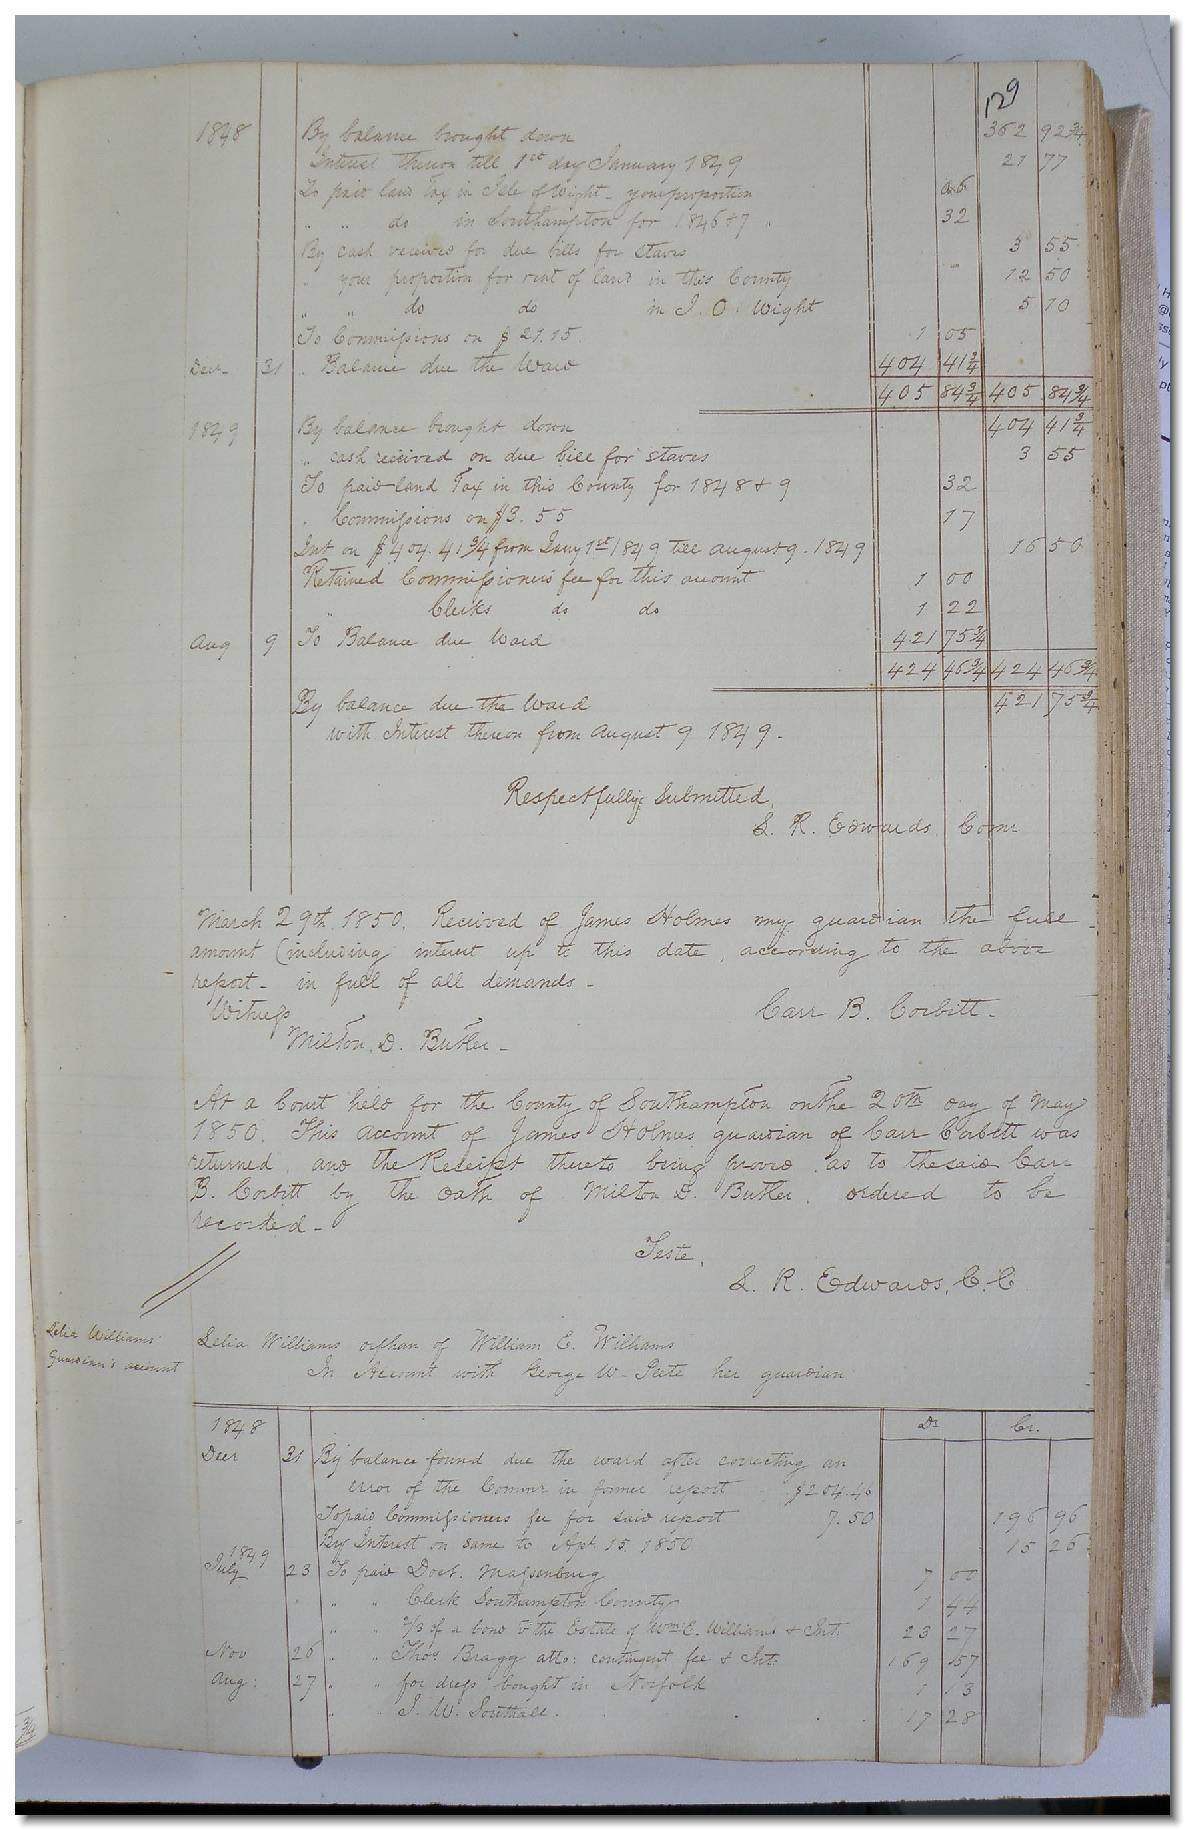 129
1848 By balance brought down 362 92 3/4
Interest thereon till 1st day January 1849 21 77
To paid land Tax in Isle of Wight - your proportion 06
" " do in Southampton for 1846 & 7. 32
By cash received for due bills for staves 3 55
" your proportion for rent of land in this County 12 50
" " do do in I. O. Wight 5 10
To Commissions on $21.15 1 05
Decr 31 " Balance due the Ward 404 41 3/4
405 84 3/4 405 84 3/4
1849 By balance brought down 404 41 3/4
" cash received on due bill for staves 3 55
To paid land Tax in this County for 1848 & 9 32
" Commissions on $3.55 17
Int on $404.41 3/4 from Jany 1st 1849 till august 9. 1849 16 50
Retained Commissioners fee for this account 1 00
" Clerks do do 1 22
Aug 9 To Balance due Ward 421 75 3/4
424 46 3/4 424 46 3/4
By balance due the Ward 421 75 3/4
with Interest thereon from August 9 1849.
Respectfully Submitted,
L. R. Edwards Comr
March 29th 1850. Received of James Holmes my guardian the full
amount (including interest up to this date, according to the above
report - in full of all demands -
Witness Carr B. Corbitt -
Milton. D. Butler -
At a Court held for the County of Southampton on the 20th day of May
1850. This account of James Holmes guardian of Carr Corbitt was
returned, and the Receipt thereto being proved, as to the said Carr
B. Corbitt by the oath of Milton D. Butler, ordered to be
recorded -
Teste,
L. R. Edwards, C. C
Delia Williams
Guardian's account
Delia Williams orphan of William E. Williams
In Account with George W. Peete her guardian
1848 Dr Cr.
Decr 31 By balance found due the ward after correcting an
error of the Commr in former report $204.46
To paid Commissioners fee for said report 7.50 196 96
By Interest on same to Apt. 15. 1850 15 26
1849
July 23 To paid Doct. Massenburg 7 00
" " " Clerk Southampton County 1 44
" " 2/3 of a bond to the Estate of Wm E. Williams & Int: 23 27
Nov 26 " " Thos Bragg atto: contingent fee & Int: 169 57
Aug: 27 " " for dress bought in Norfolk 1 13
" " J. W. Southall. 17 28